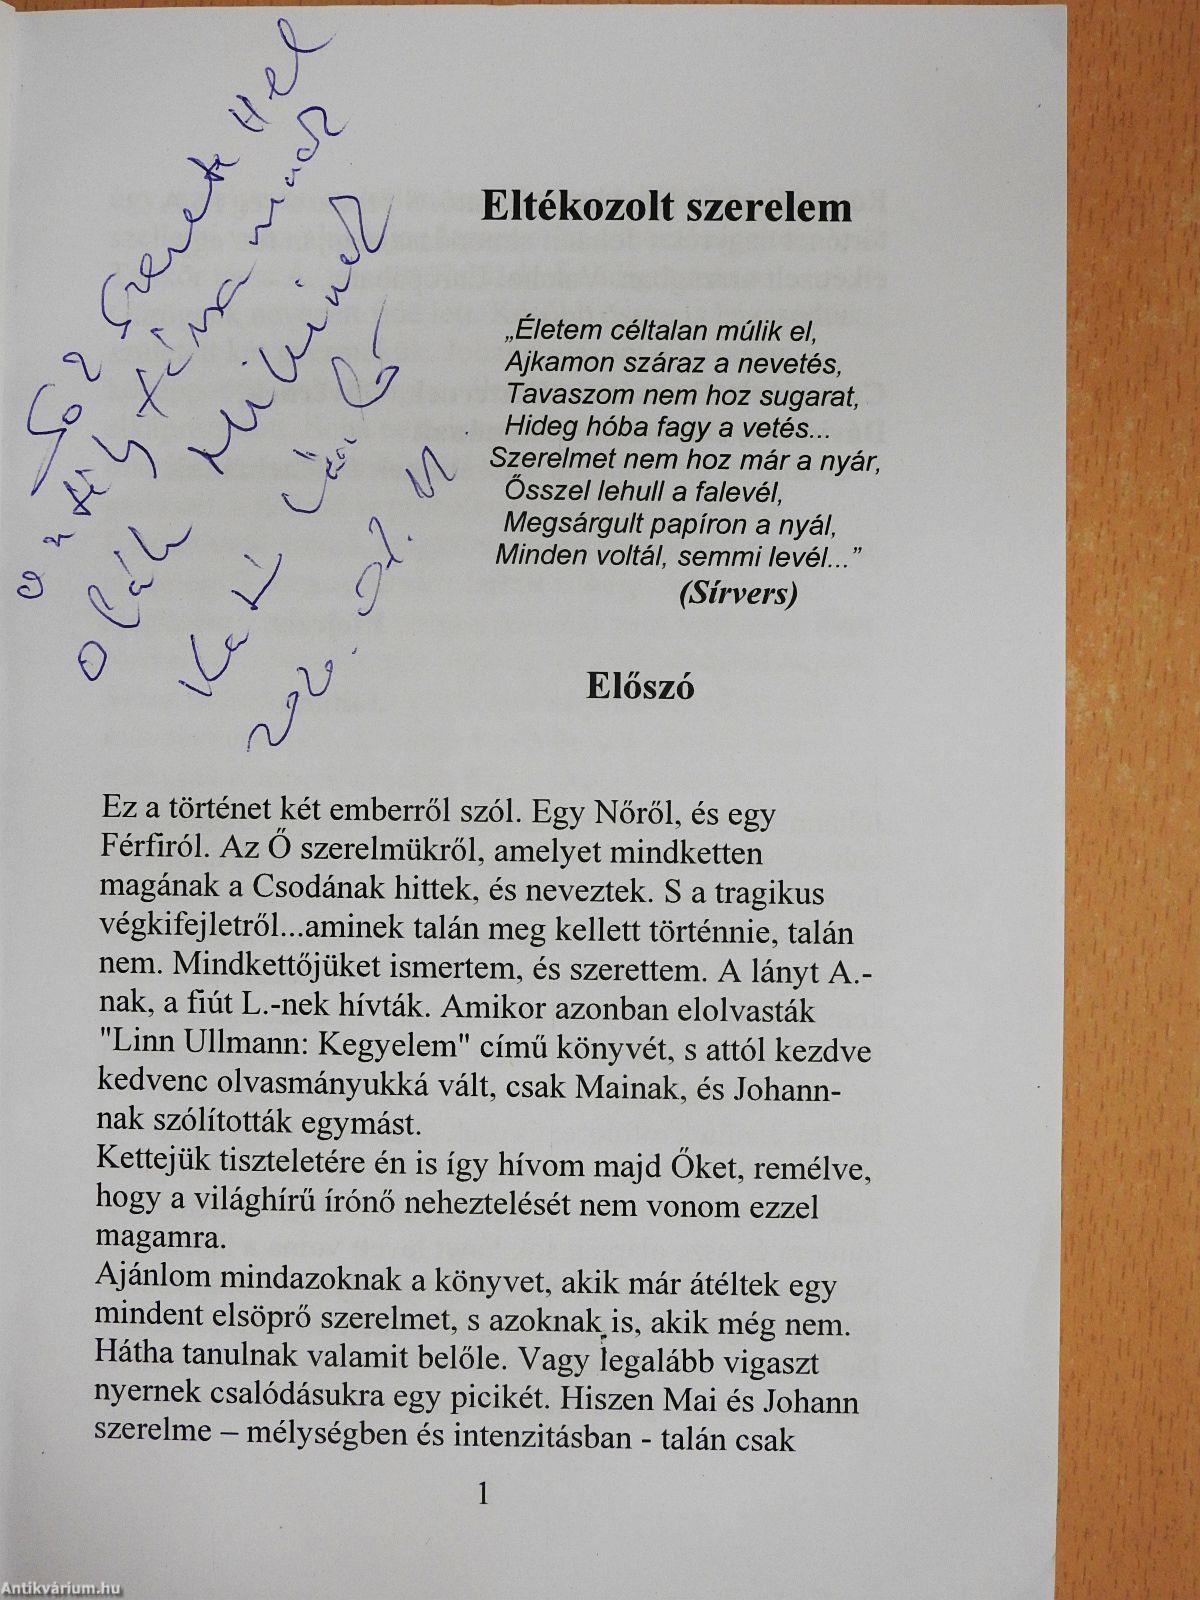 Sok szeretettel
Krisztinának
Oláh
Kati
2020.
Eltékozolt szerelem
„Életem céltalan múlik el,
Ajkamon száraz a nevetés,
Tavaszom nem hoz sugarat,
Hideg hóba fagy a vetés...
Szerelmet nem hoz már a nyár,
Ősszel lehull a falevél,
Megsárgult papíron a nyál,
Minden voltál, semmi levél...”
(Sírvers)
Előszó
Ez a történet két emberről szól. Egy Nőről, és egy
Férfiról. Az Ő szerelmükről, amelyet mindketten
magának a Csodának hittek, és neveztek. S a tragikus
végkifejletről...aminek talán meg kellett történnie, talán
nem. Mindkettőjüket ismertem, és szerettem. A lányt A.-
nak, a fiút L.-nek hívták. Amikor azonban elolvasták
"Linn Ullmann: Kegyelem" című könyvét, s attól kezdve
kedvenc olvasmányukká vált, csak Mainak, és Johann-
nak szólították egymást.
Kettejük tiszteletére én is így hívom majd Őket, remélve,
hogy a világhírű írónő neheztelését nem vonom ezzel
magamra.
Ajánlom mindazoknak a könyvet, akik már átéltek egy
mindent elsöprő szerelmet, s azoknak is, akik még nem.
Hátha tanulnak valamit belőle. Vagy legalább vigaszt
nyernek csalódásukra egy picikét. Hiszen Mai és Johann
szerelme – mélységben és intenzitásban - talán csak
1
Antikvárium.hu